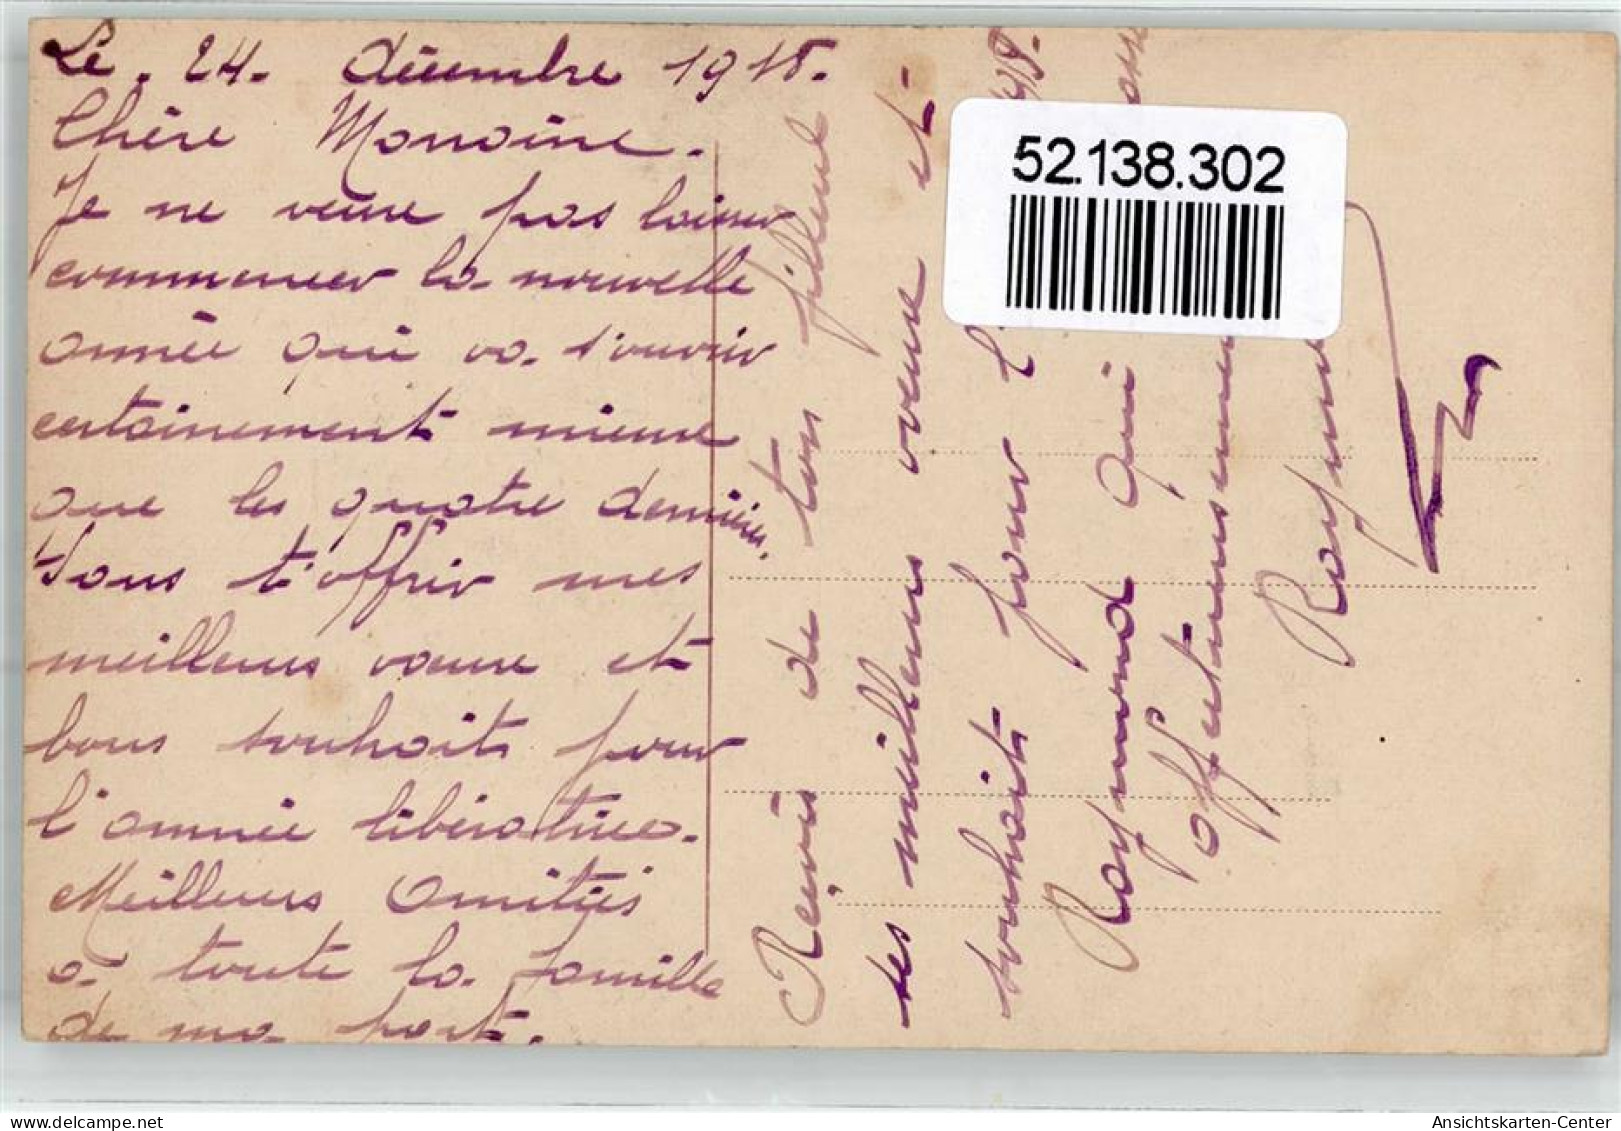 Le. 24. décembre 1918.
Chère Marraine.
Je ne veux pas laisser
commencer la nouvelle
année qui va s'ouvrir
certainement mieux
que les quatre dernières,
sans t'offrir mes
meilleurs vœux et
bons souhaits pour
l'année libératrice.
Meilleurs Amitiés
à toute la famille
de ma part.
Reçois de ton filleul
ses meilleurs vœux et
souhaits pour l'
Raymond qui
affectueusement
Raymond
52.138.302
Ansichtskarten-Center